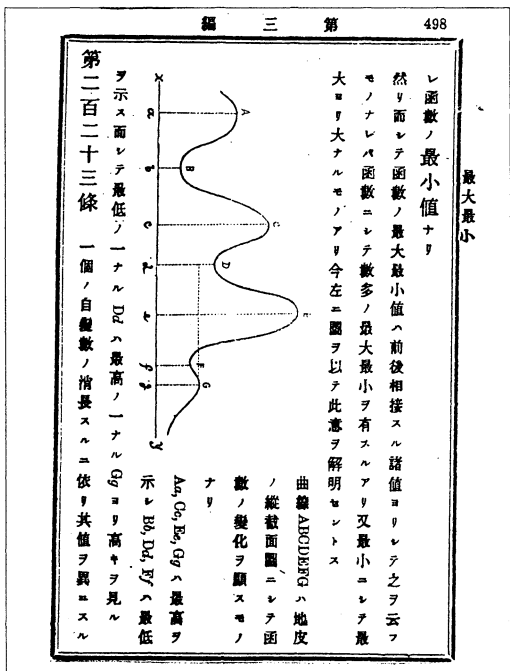 498
第三編
最大最小
レ函數ノ最小値ナリ
然リ而シテ函數ノ最大最小値ハ前後相接スル諸値ヨリシテ之ヲ云フ
モノナレバ函數ニシテ數多ノ最大最小ヲ有スルアリ又最小ニシテ最
大ヨリ大ナルモノアリ今左ニ圖ヲ以テ此意ヲ解明セントス
曲線ABCDEFGハ地皮
ノ縱截面圖ニシテ函
數ノ變化ヲ顯スモノ
ナリ
Aa, Cc, Ee, Ggハ最高ヲ
示シBb, Dd, Ffハ最低
ヲ示ス而シテ最低ノ一ナルDdハ最高ノ一ナルGgヨリ高キヲ見ル
第二百二十三條 一個ノ自變數ノ消長スルニ依リ其値ヲ異ニスル
x
a
b
c
d
e
f
g
y
A
B
C
D
E
F
G